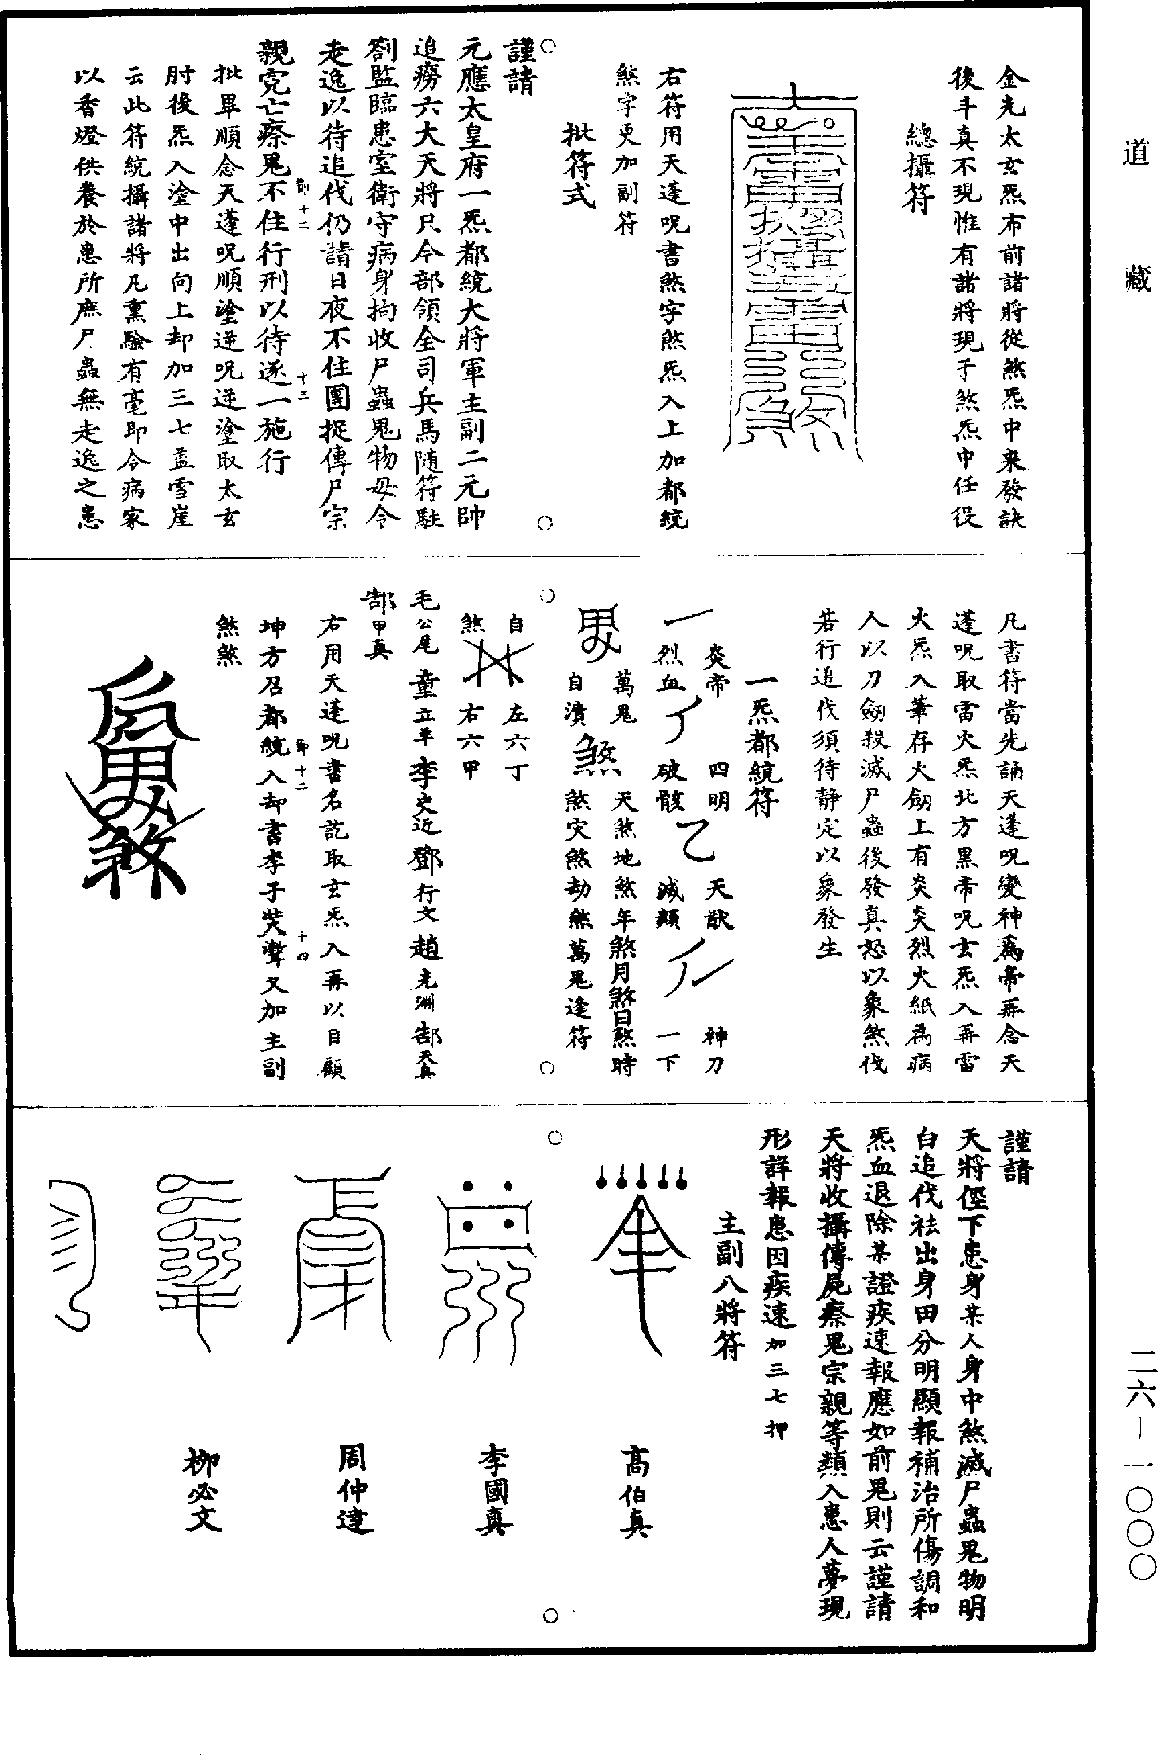 道藏
金光太玄炁布前諸將從煞炁中來發訣
後斗真不現惟有諸將現于煞炁中任役
總攝符
右符用天蓬呪書煞字煞炁入上加都統
煞字更加副符
批符式
謹請
元應太皇府一炁都統大將軍主副二元帥
追癆六大天將只今部領全司兵馬隨符駐
劄監臨患室衛守病身拘收尸蟲鬼物毋令
走逸以待追伐仍請日夜不住團捉傳尸宗
親究亡瘵鬼不住行刑以待逐一施行
批畢順念天蓬呪順塗逆呪逆塗取太玄
肘後炁入塗中出向上却加三七蓋雪崖
云此符統攝諸將凡熏驗有毫即令病家
以香燈供養於患所庶尸蟲無走逸之患
凡書符當先誦天蓬呪變神為帝再念天
蓬呪取雷火炁北方黑帝呪玄炁入再雷
火炁入筆存火劒上有炎炎烈火紙為病
人以刀劒殺滅尸蟲後發真怒以象煞伐
若行追伐須待靜定以象發生
一炁都統符
炎帝 四明 天猷 神刀
烈血 破骸 滅類 一下
萬鬼 天煞地煞年煞月煞日煞時
自潰 煞灾煞劫煞萬鬼逢符
自 左六丁
煞 右六甲
毛公尾 童立平 李史近 鄧行文 趙光淵 郜天真
郜甲真
右用天蓬呪書名訖取玄炁入再以目顧
坤方召都統入却書李子笑聲又加主副
煞煞
謹請
天將徑下患身某人身中煞滅尸蟲鬼物明
白追伐祛出身田分明顯報補治所傷調和
炁血退除某證疾速報應如前鬼則云謹請
天將收攝傳屍瘵鬼宗親等類入患人夢現
形詳報患因疾速加三七押
主副八將符
高伯真
李國真
周仲達
柳必文
二六-一〇〇〇